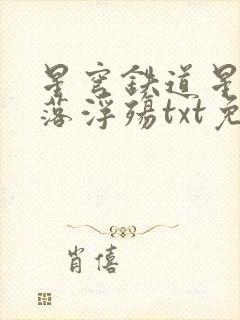 星穹铁道星
落浮殇txt免
肖僖